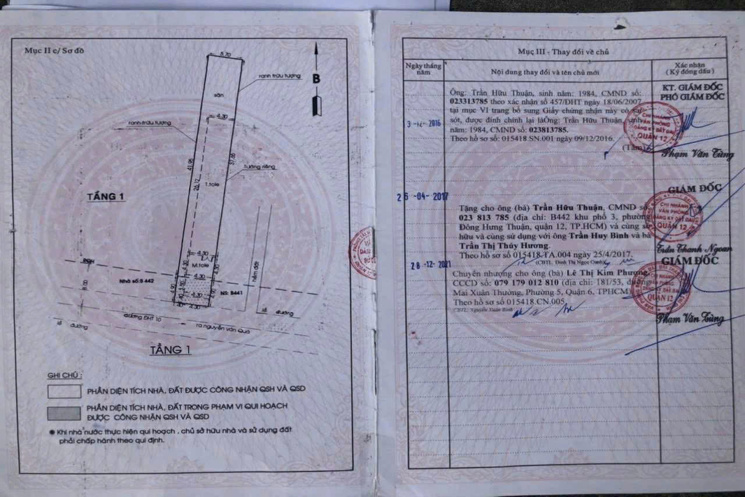 Mục II c/ Sơ đồ
8.70
ranh trừu tượng
B
sân
ranh trừu tượng
4.30
tường riêng
TẦNG 1
1.tole
4.30
st.tole
4.30
Nhà số: B 442
Nhà B441
4.30
hẻm đất
lề
đường
đường ĐHT 10
ra nguyễn văn Quá
lề
đường
TẦNG 1
GHI CHÚ :
PHẦN DIỆN TÍCH NHÀ, ĐẤT ĐƯỢC CÔNG NHẬN QSH VÀ QSD
PHẦN DIỆN TÍCH NHÀ, ĐẤT TRONG PHẠM VI QUI HOẠCH
ĐƯỢC CÔNG NHẬN QSH VÀ QSD
Khi nhà nước thực hiện qui hoạch , chủ sở hữu nhà và sử dụng đất
phải chấp hành theo qui định.
Mục III - Thay đổi về chủ
Ngày tháng
năm
Nội dung thay đổi và tên chủ mới
Xác nhận
(Ký đóng dấu)
Ông: Trần Hữu Thuận, sinh năm: 1984, CMND số:
023313785 theo xác nhận số 457/ĐHT ngày 18/06/2007
tại mục VI trang bổ sung Giấy chứng nhận này có
sót, được đính chính lại là Ông: Trần Hữu Thuận, sinh
năm: 1984, CMND số: 023813785.
Theo hồ sơ số: 015418 SN.001 ngày 09/12/2016.
KT. GIÁM ĐỐC
PHÓ GIÁM ĐỐC
QUẬN 12
Phạm Văn Tùng
-04- 2017
Tặng cho ông (bà) Trần Hữu Thuận, CMND số:
023 813 785 (địa chỉ: B442 khu phố 3, phường
Đông Hưng Thuận, quận 12, TP.HCM) và cùng sở
hữu và cùng sử dụng với ông Trần Huy Bình và bà
Trần Thị Thúy Hương.
Theo hồ sơ 015418.TA.004 ngày 25/4/2017.
GIÁM ĐỐC
CHI NHÁNH
VĂN PHÒNG
ĐĂNG KÝ ĐẤT ĐAI
QUẬN 12
28 -12- 2021
Chuyển nhượng cho ông (bà) Lê Thị Kim Phượng,
CCCD số: 079 179 012 810 (địa chỉ: 181/53, đường
Mai Xuân Thưởng, Phường 5, Quận 6, TPHCM)
Theo hồ sơ 015418.CN.005
GIÁM ĐỐC
QUẬN 12
Phạm Văn Tùng